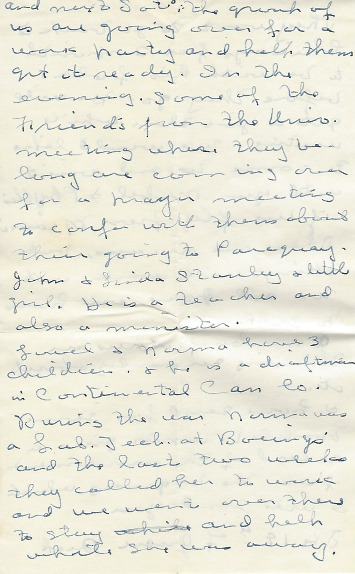 and next Sat. the group of
us are going over for a
work party and help them
get it ready. In the
evening. Some of the
Friends from the Univ.
meeting where they be-
long are coming over
for a prayer meeting
to confer with them about
their going to Paraguay.
John & Linda Stanley & little
girl. He is a teacher and
also a minister.
& Norma have 3
children. & he is a draftman
in Continental Can Co.
During the war Norma was
a Lab. Tech. at Boeings
and the last two weeks
they called her to work
and we went over there
to stay and help
while she was away.